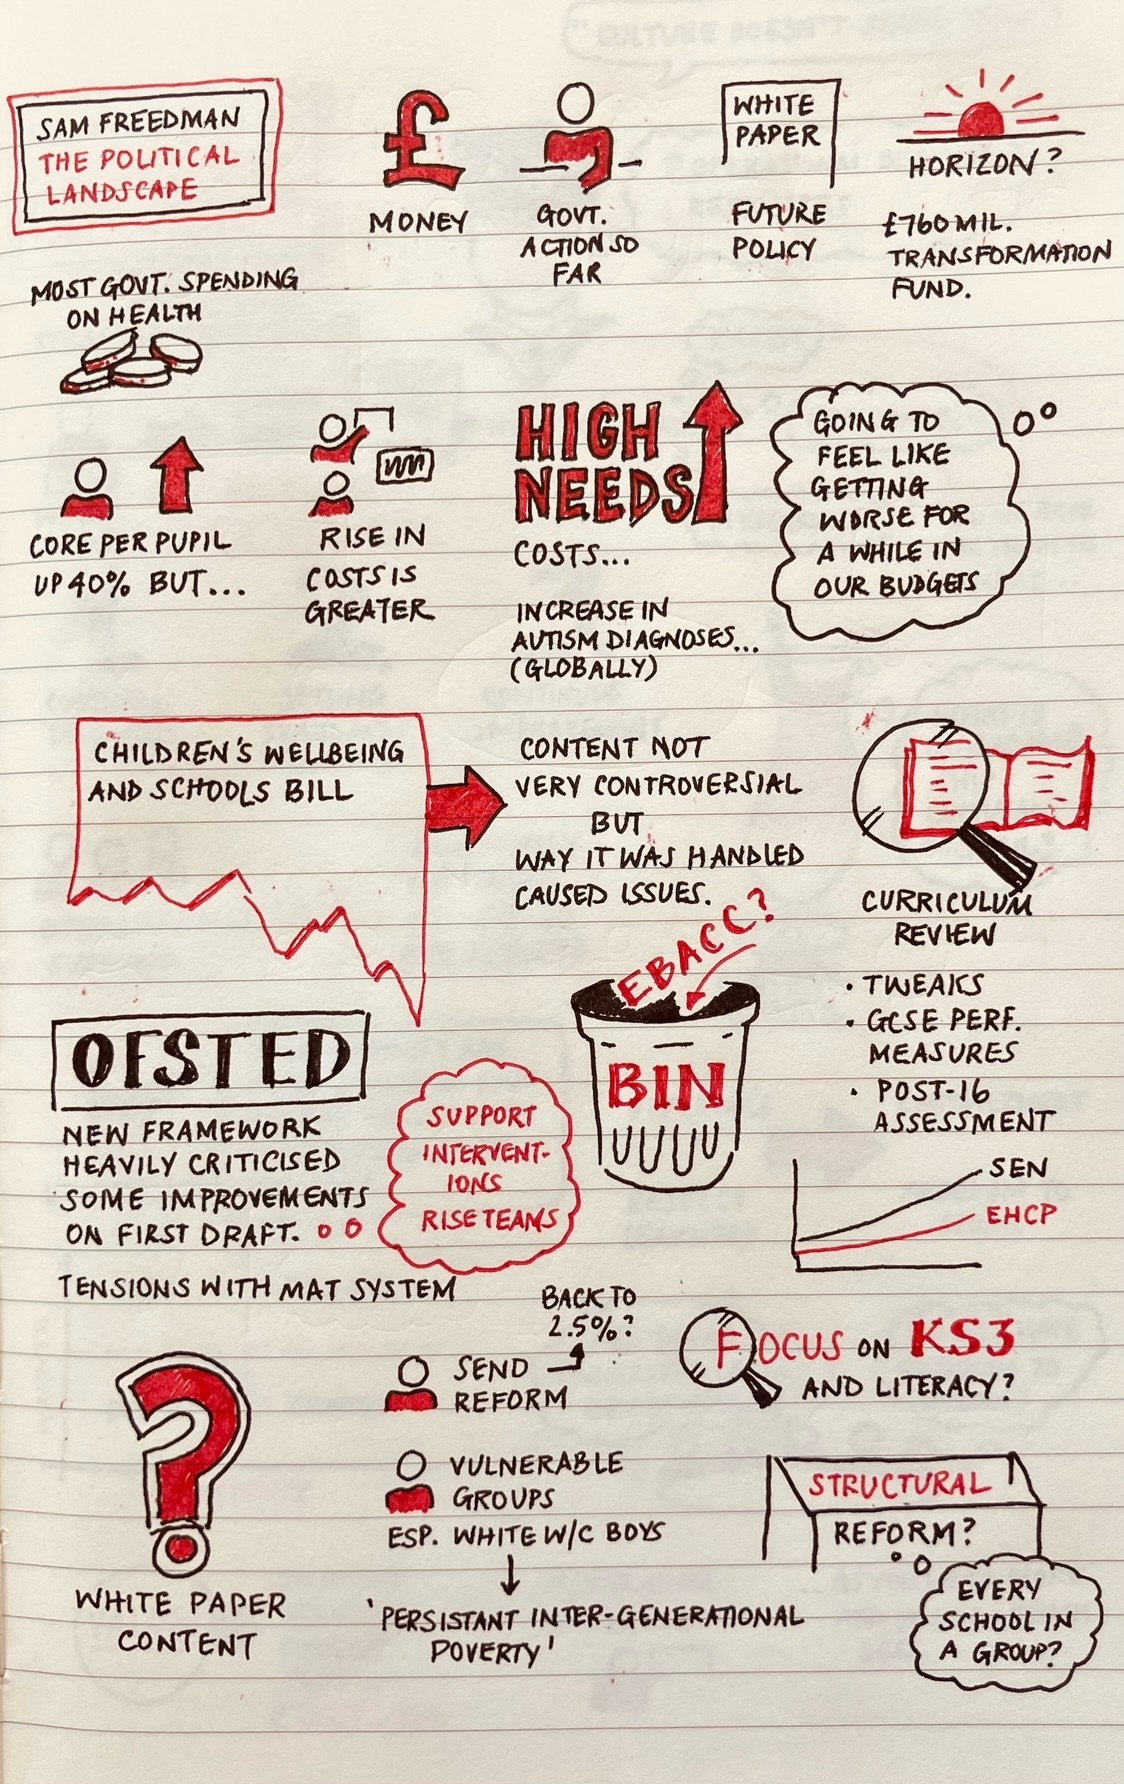 SAM FREEDMAN
THE POLITICAL
LANDSCAPE
£
MONEY
GOVT.
ACTION SO
FAR
WHITE
PAPER
FUTURE
POLICY
HORIZON?
£760 MIL.
TRANSFORMATION
FUND.
MOST GOVT. SPENDING
ON HEALTH
CORE PER PUPIL
UP 40% BUT...
RISE IN
COSTS IS
GREATER
HIGH
NEEDS
COSTS...
INCREASE IN
AUTISM DIAGNOSES...
(GLOBALLY)
GOING TO
FEEL LIKE
GETTING
WORSE FOR
A WHILE IN
OUR BUDGETS
CHILDREN'S WELLBEING
AND SCHOOLS BILL
CONTENT NOT
VERY CONTROVERSIAL
BUT
WAY IT WAS HANDLED
CAUSED ISSUES.
CURRICULUM
REVIEW
• TWEAKS
• GCSE PERF.
MEASURES
• POST-16
ASSESSMENT
EBACC?
BIN
OFSTED
NEW FRAMEWORK
HEAVILY CRITICISED
SOME IMPROVEMENTS
ON FIRST DRAFT.
SUPPORT
INTERVENT-
IONS
RISE TEAMS
TENSIONS WITH MAT SYSTEM
SEN
EHCP
BACK TO
2.5%?
SEND
REFORM
FOCUS ON KS3
AND LITERACY?
?
WHITE PAPER
CONTENT
VULNERABLE
GROUPS
ESP. WHITE W/C BOYS
'PERSISTANT INTER-GENERATIONAL
POVERTY'
STRUCTURAL
REFORM?
EVERY
SCHOOL IN
A GROUP?